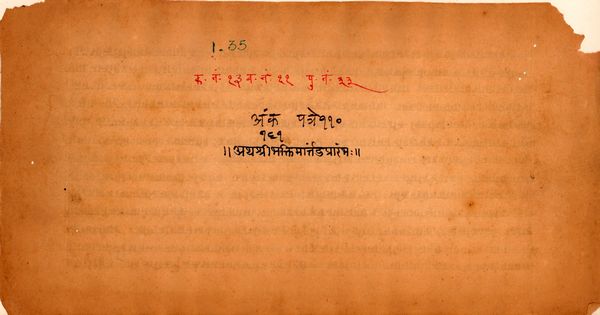 1-35
क्र. नं. १३ व. नं. ११ पु. नं. ३३
अंक पत्रे ११०
१६१
॥अथश्रीभक्तिमार्तंडप्रारंभः॥